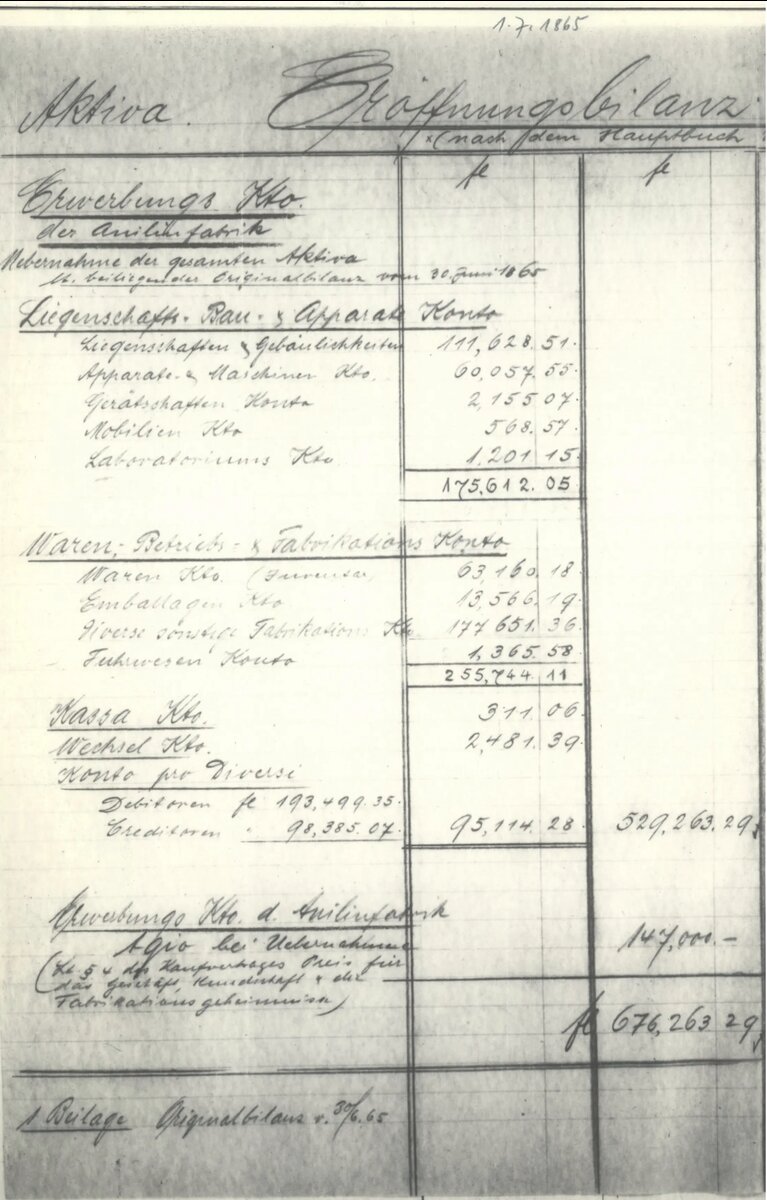 1.7.1865
Aktiva. Eröffnungsbilanz.
×(nach dem Hauptbuch
fl fl
Erwerbungs Kto.
der Anilinfabrik
Uebernahme der gesamten Aktiva
lt. beiliegender Originalbilanz vom 30. Juni 1865
Liegenschafts- Bau- & Apparate Konto
Liegenschaften & Gebäulichkeiten 111,628.51.
Apparate- & Maschinen Kto. 60,057.55.
Gerätschaften Konto 2,155 07.
Mobilien Kto 568.57.
Laboratoriums Kto 1,201 15.
175,612.05.
Waren-, Betriebs- & Fabrikations Konto
Waren Kto. (Inventar) 63,160.18.
Emballagen Kto 13,566.19.
Diverse sonstige Fabrikations Kto 177 651.36
Fuhrwesen Konto 1,365.58
255,744 11
Kassa Kto. 311 06.
Wechsel Kto. 2,481.39
Konto pro Diversi
Debitoren fl 193,499.35.
Creditoren " 98,385.07. 95,114.28 529,263.29
Erwerbungs Kto. d. Anilinfabrik
Agio bei Uebernahme 147,000.-
(Lt § 4 des Kaufvertrages Preis für
das Geschäft, Kundschaft & die
Fabrikationsgeheimnisse)
fl 676,263 29
1 Beilage Originalbilanz v. 30/6.65